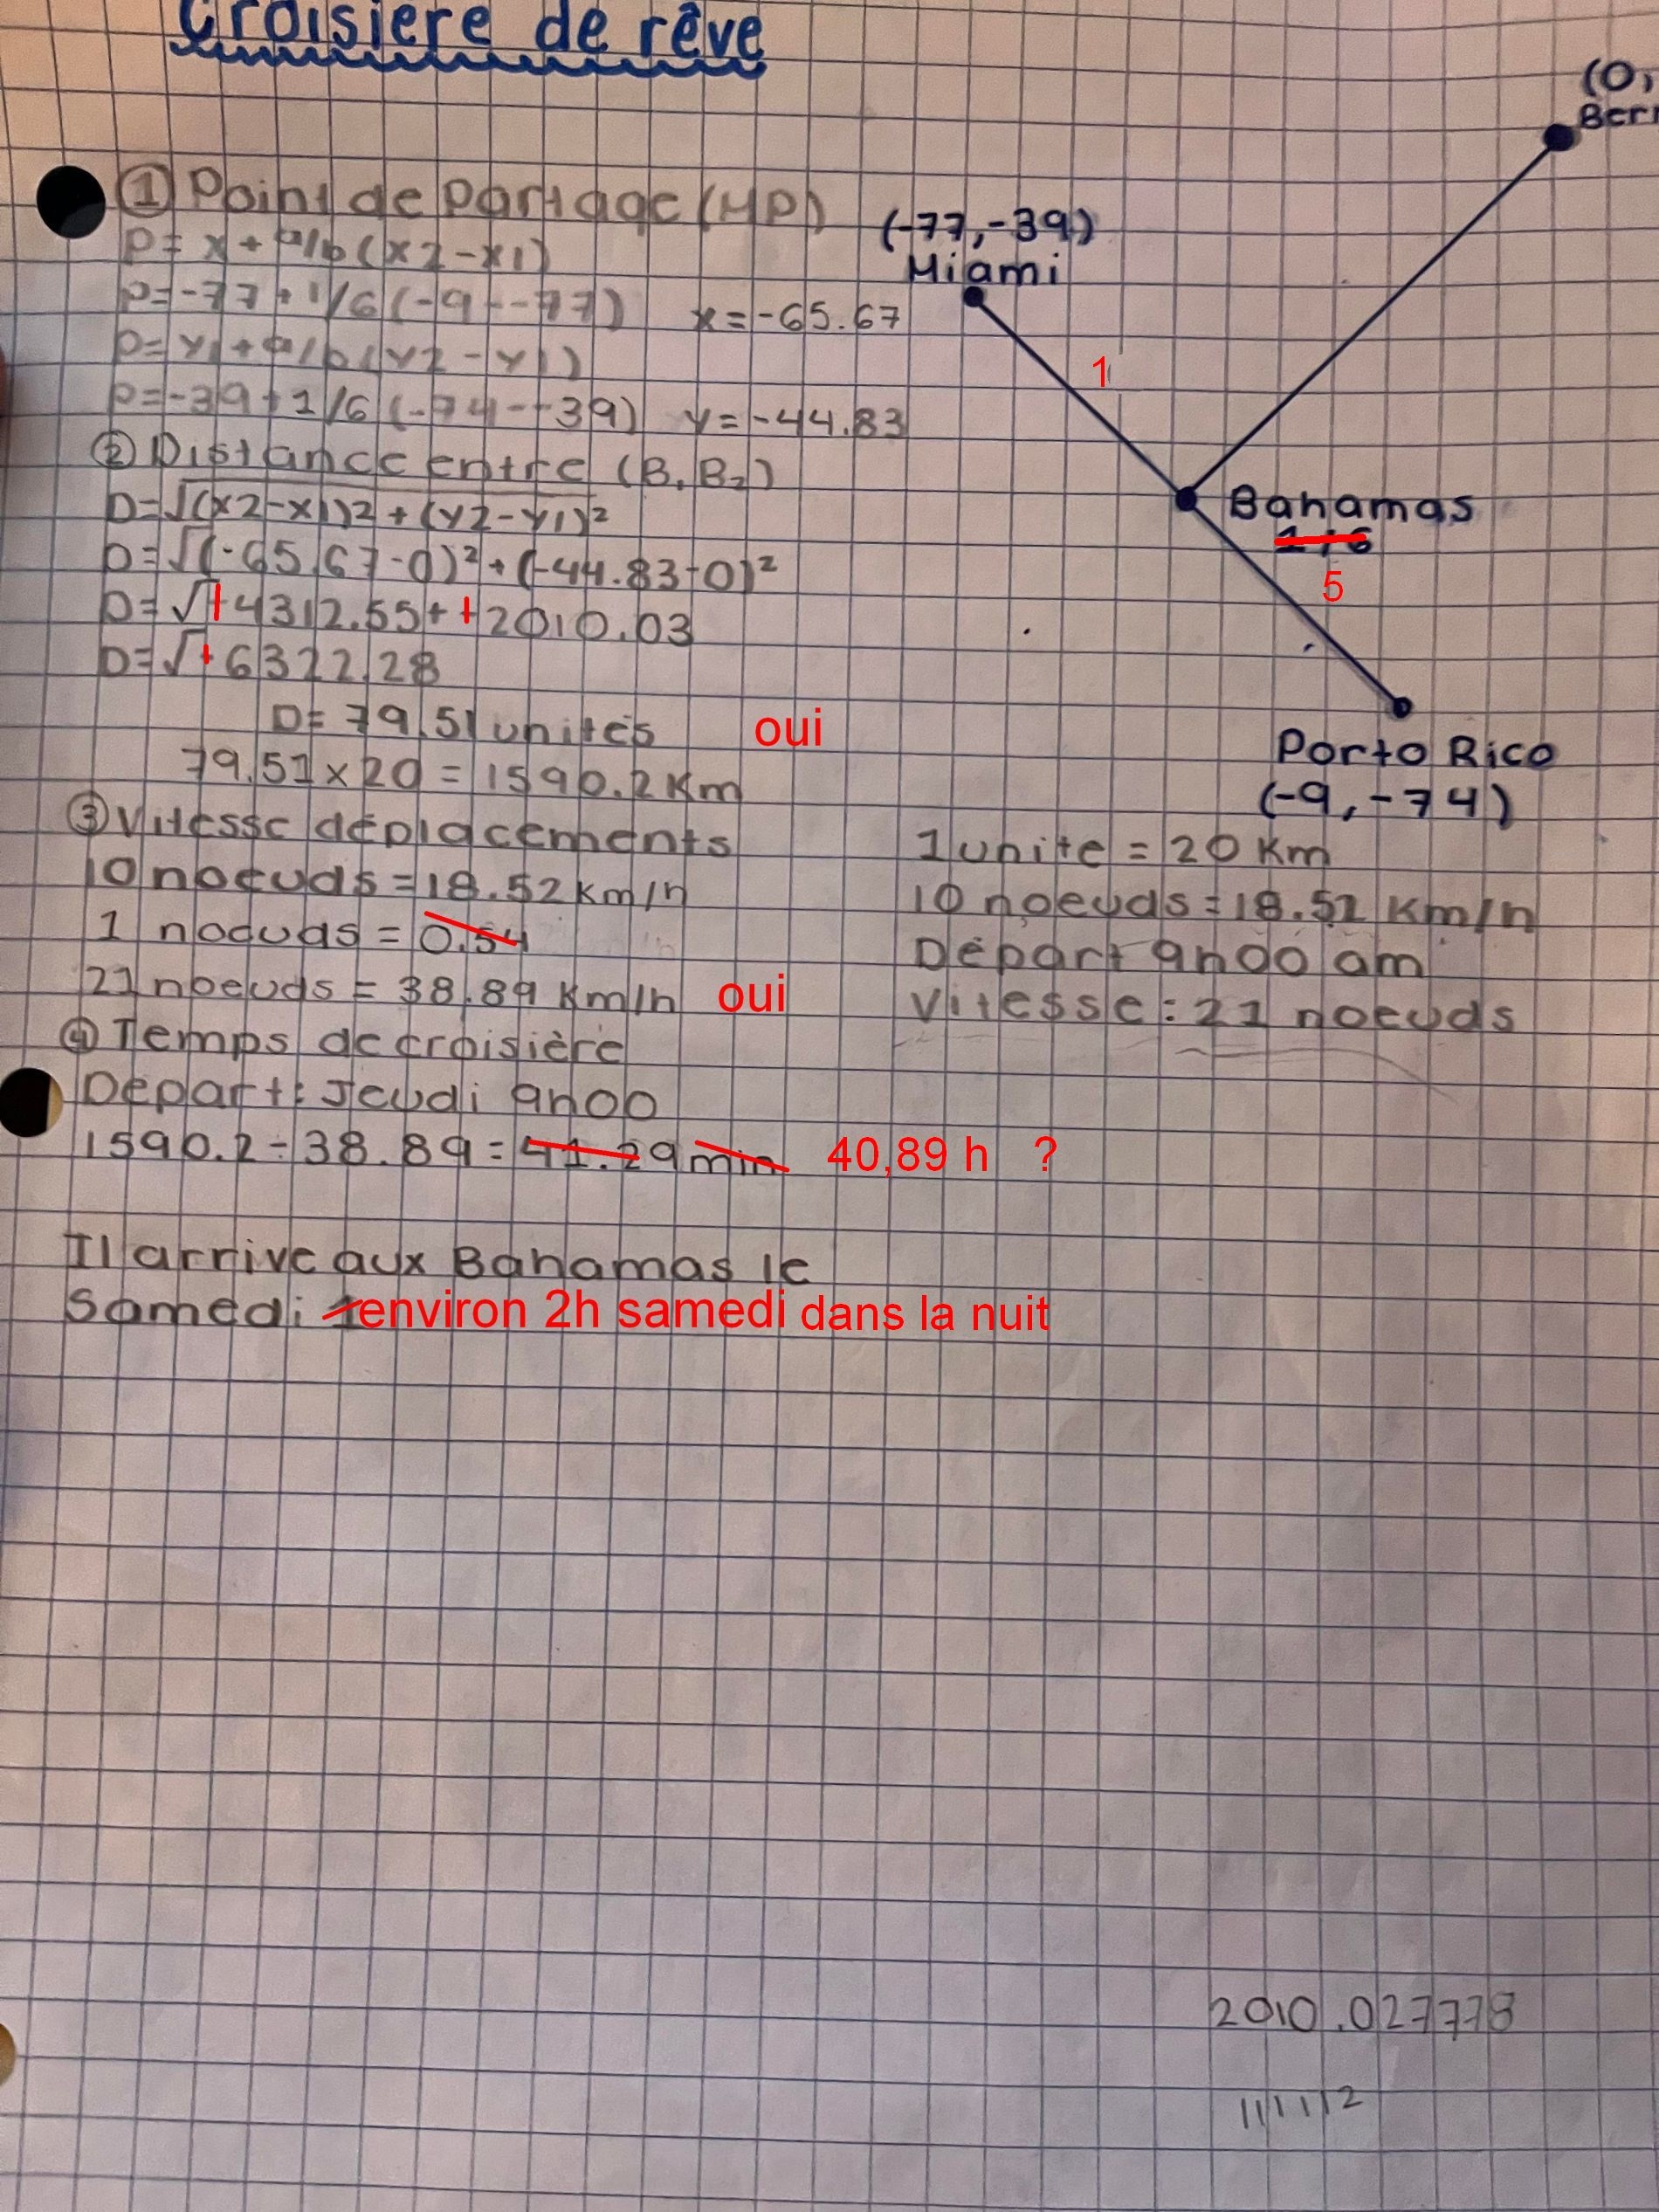 Croisière de rêve
(0,
① Point de partage (MP)
P= x + a/b (x2-x1)
P=-77+1/6(-9--77) x=-65.67
P=y1+a/b(y2-y1)
P=-39+1/6(-74--39) y=-44.83
② Distance entre (B1B2)
D=√(x2-x1)2+(y2-y1)²
D=√(-65.67-0)²+(-44.83-0)²
D=√+4312.55++2010.03
D=√+6322.28
D= 79.51 unités oui
79.51x20=1590.2 Km
③ Vitesse déplacements
10 noeuds = 18.52 km/h
1 noeuds = 0.54
21 noeuds = 38.89 Km/h oui
④ Temps de croisière
Départ: Jeudi 9h00
1590.2÷38.89=41.29 min 40,89 h ?
Il arrive aux Bahamas le
Samedi 1 environ 2h samedi dans la nuit
(-77,-39)
Miami
1
Bahamas
1:6
5
Porto Rico
(-9,-74)
1 unite = 20 Km
10 noeuds = 18.52 Km/h
Départ 9h00 am
Vitesse: 21 noeuds
2010.027778
111112